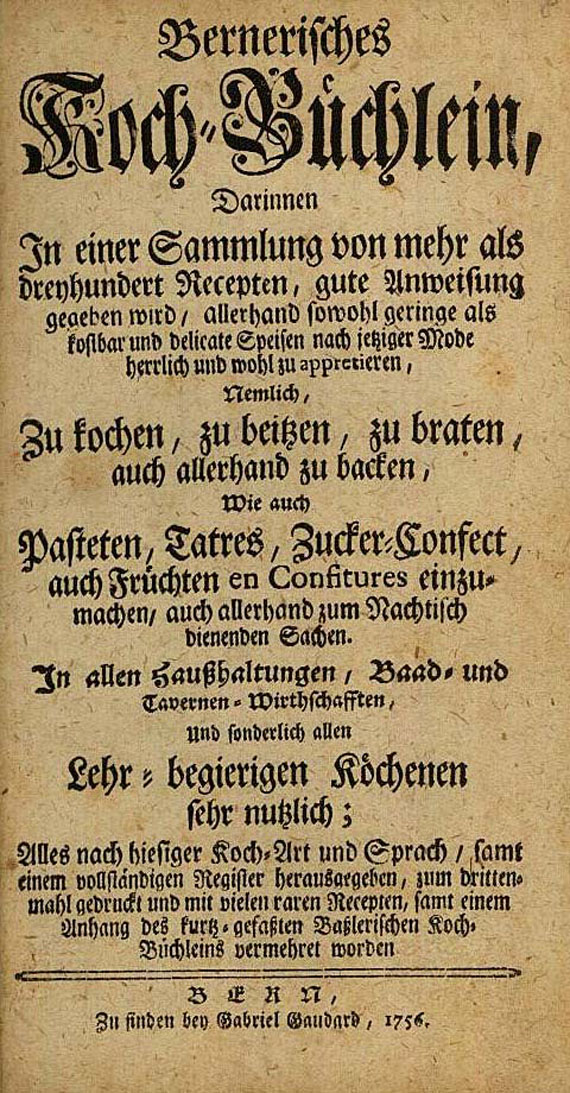 Bernerisches
Koch-Büchlein,
Darinnen
In einer Sammlung von mehr als
dreyhundert Recepten, gute Anweisung
gegeben wird / allerhand sowohl geringe als
kostbar und delicate Speisen nach jetziger Mode
herrlich und wohl zu appretieren,
Nemlich,
Zu kochen, zu beitzen, zu braten,
auch allerhand zu backen,
Wie auch
Pasteten, Tatres, Zucker-Confect,
auch Früchten en Confitures einzu-
machen/ auch allerhand zum Nachtisch
dienenden Sachen.
In allen Haußhaltungen / Baad- und
Tavernen-Wirthschafften,
Und sonderlich allen
Lehr-begierigen Köchenen
sehr nutzlich;
Alles nach hiesiger Koch-Art und Sprach / samt
einem vollständigen Register herausgegeben, zum dritten-
mahl gedruckt und mit vielen raren Recepten, samt einem
Anhang des kurtz-gefaßten Baßlerischen Koch-
Büchleins vermehret worden
BERN,
Zu finden bey Gabriel Gaudard, 1756.